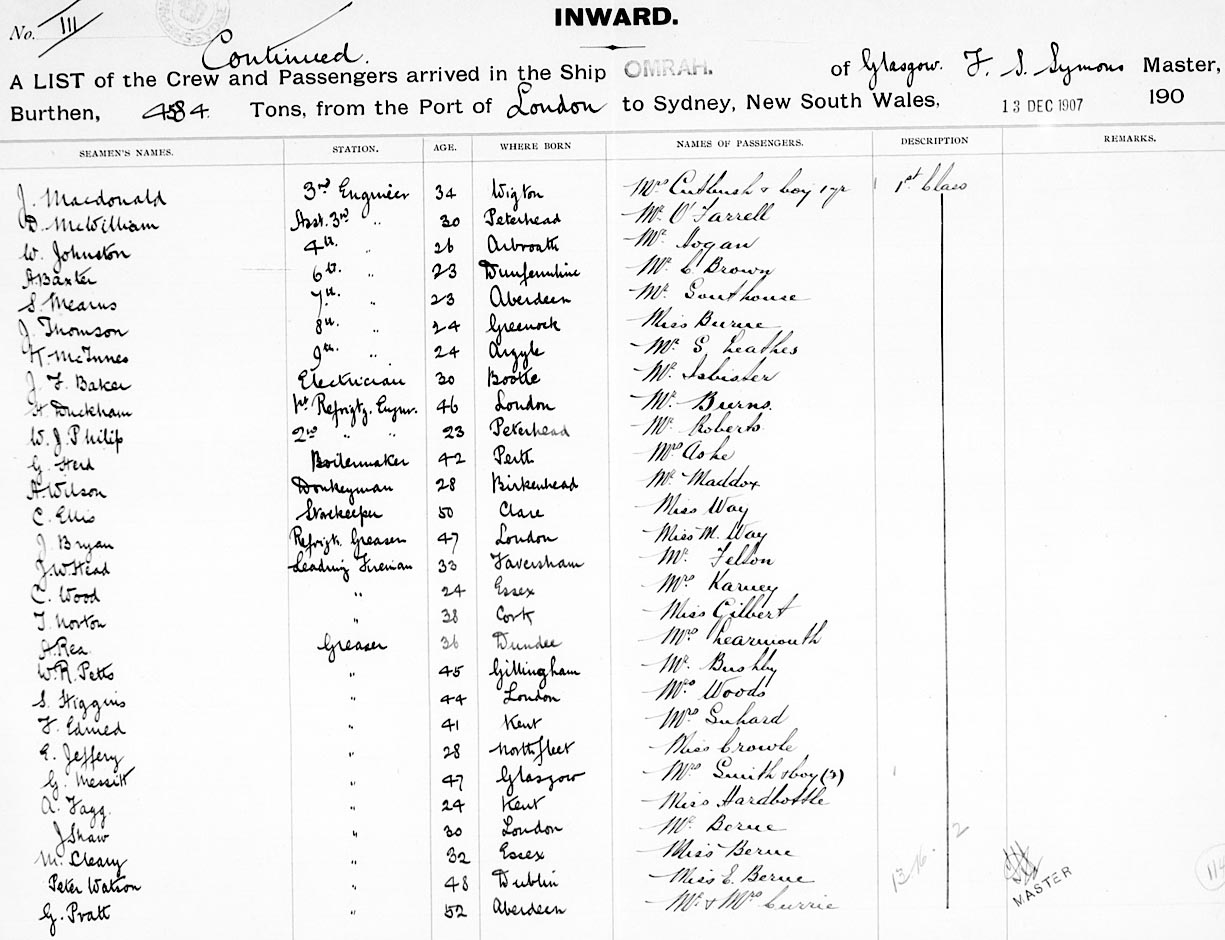 INWARD.
No. III
Continued.
A LIST of the Crew and Passengers arrived in the Ship OMRAH. of Glasgow. F. S. Symons Master,
Burthen, 4584 Tons, from the Port of London to Sydney, New South Wales, 13 DEC 1907 190
SEAMEN'S NAMES. STATION. AGE. WHERE BORN NAMES OF PASSENGERS. DESCRIPTION REMARKS.
J. Macdonald 3rd Engineer 34 Wigton Mrs Cutbush & boy 1 yr 1st Class
D. McWilliam Asst. 3rd " 30 Peterhead Mr O'Farrell
W. Johnston 4th " 26 Arbroath Mr Hogan
A. Baxter 6th " 23 Dunfermline Mr C Brown
S. Mearns 7th " 23 Aberdeen Mr Southouse
J. Thomson 8th " 24 Greenock Miss Burne
H. McInnes 9th " 24 Argyle Mr S Leathes
J. F. Baker Electrician 30 Bootle Mr Isbister
H. Duckham 1st Refrigtg. Engnr. 46 London Mr Burns.
W. J. Philip 2nd " " 23 Peterhead Mr Roberts
G. Herd Boilermaker 42 Perth Mrs Ashe
A. Wilson Donkeyman 28 Birkenhead Mr Maddox
C. Ellis Storekeeper 50 Clare Miss Way
J. Bryan Refrigtr. Greaser 47 London Miss M. Way
J. W. Head Leading Fireman 33 Faversham Mr. Felson
C. Wood " 24 Essex Mrs Karney
T. Norton " 38 Cork Miss Gilbert
A. Rea Greaser 36 Dundee Mrs Learmouth
W. R. Petts " 45 Gillingham Mr. Bushby
S. Higgins " 44 London Mrs Woods
F. Edmed " 41 Kent Mrs
E. Jeffery " 28 Northfleet Miss Crowle
G. Messitt " 47 Glasgow Mrs Smith & boy (3)
A. Fagg. " 24 Kent Miss Hardbottle
J Shaw " 30 London Mr Berne
M. Cleary " 32 Essex Miss Berne
Peter Watson " 48 Dublin Miss E. Berne
G. Pratt " 52 Aberdeen Mr & Mrs Currie
MASTER